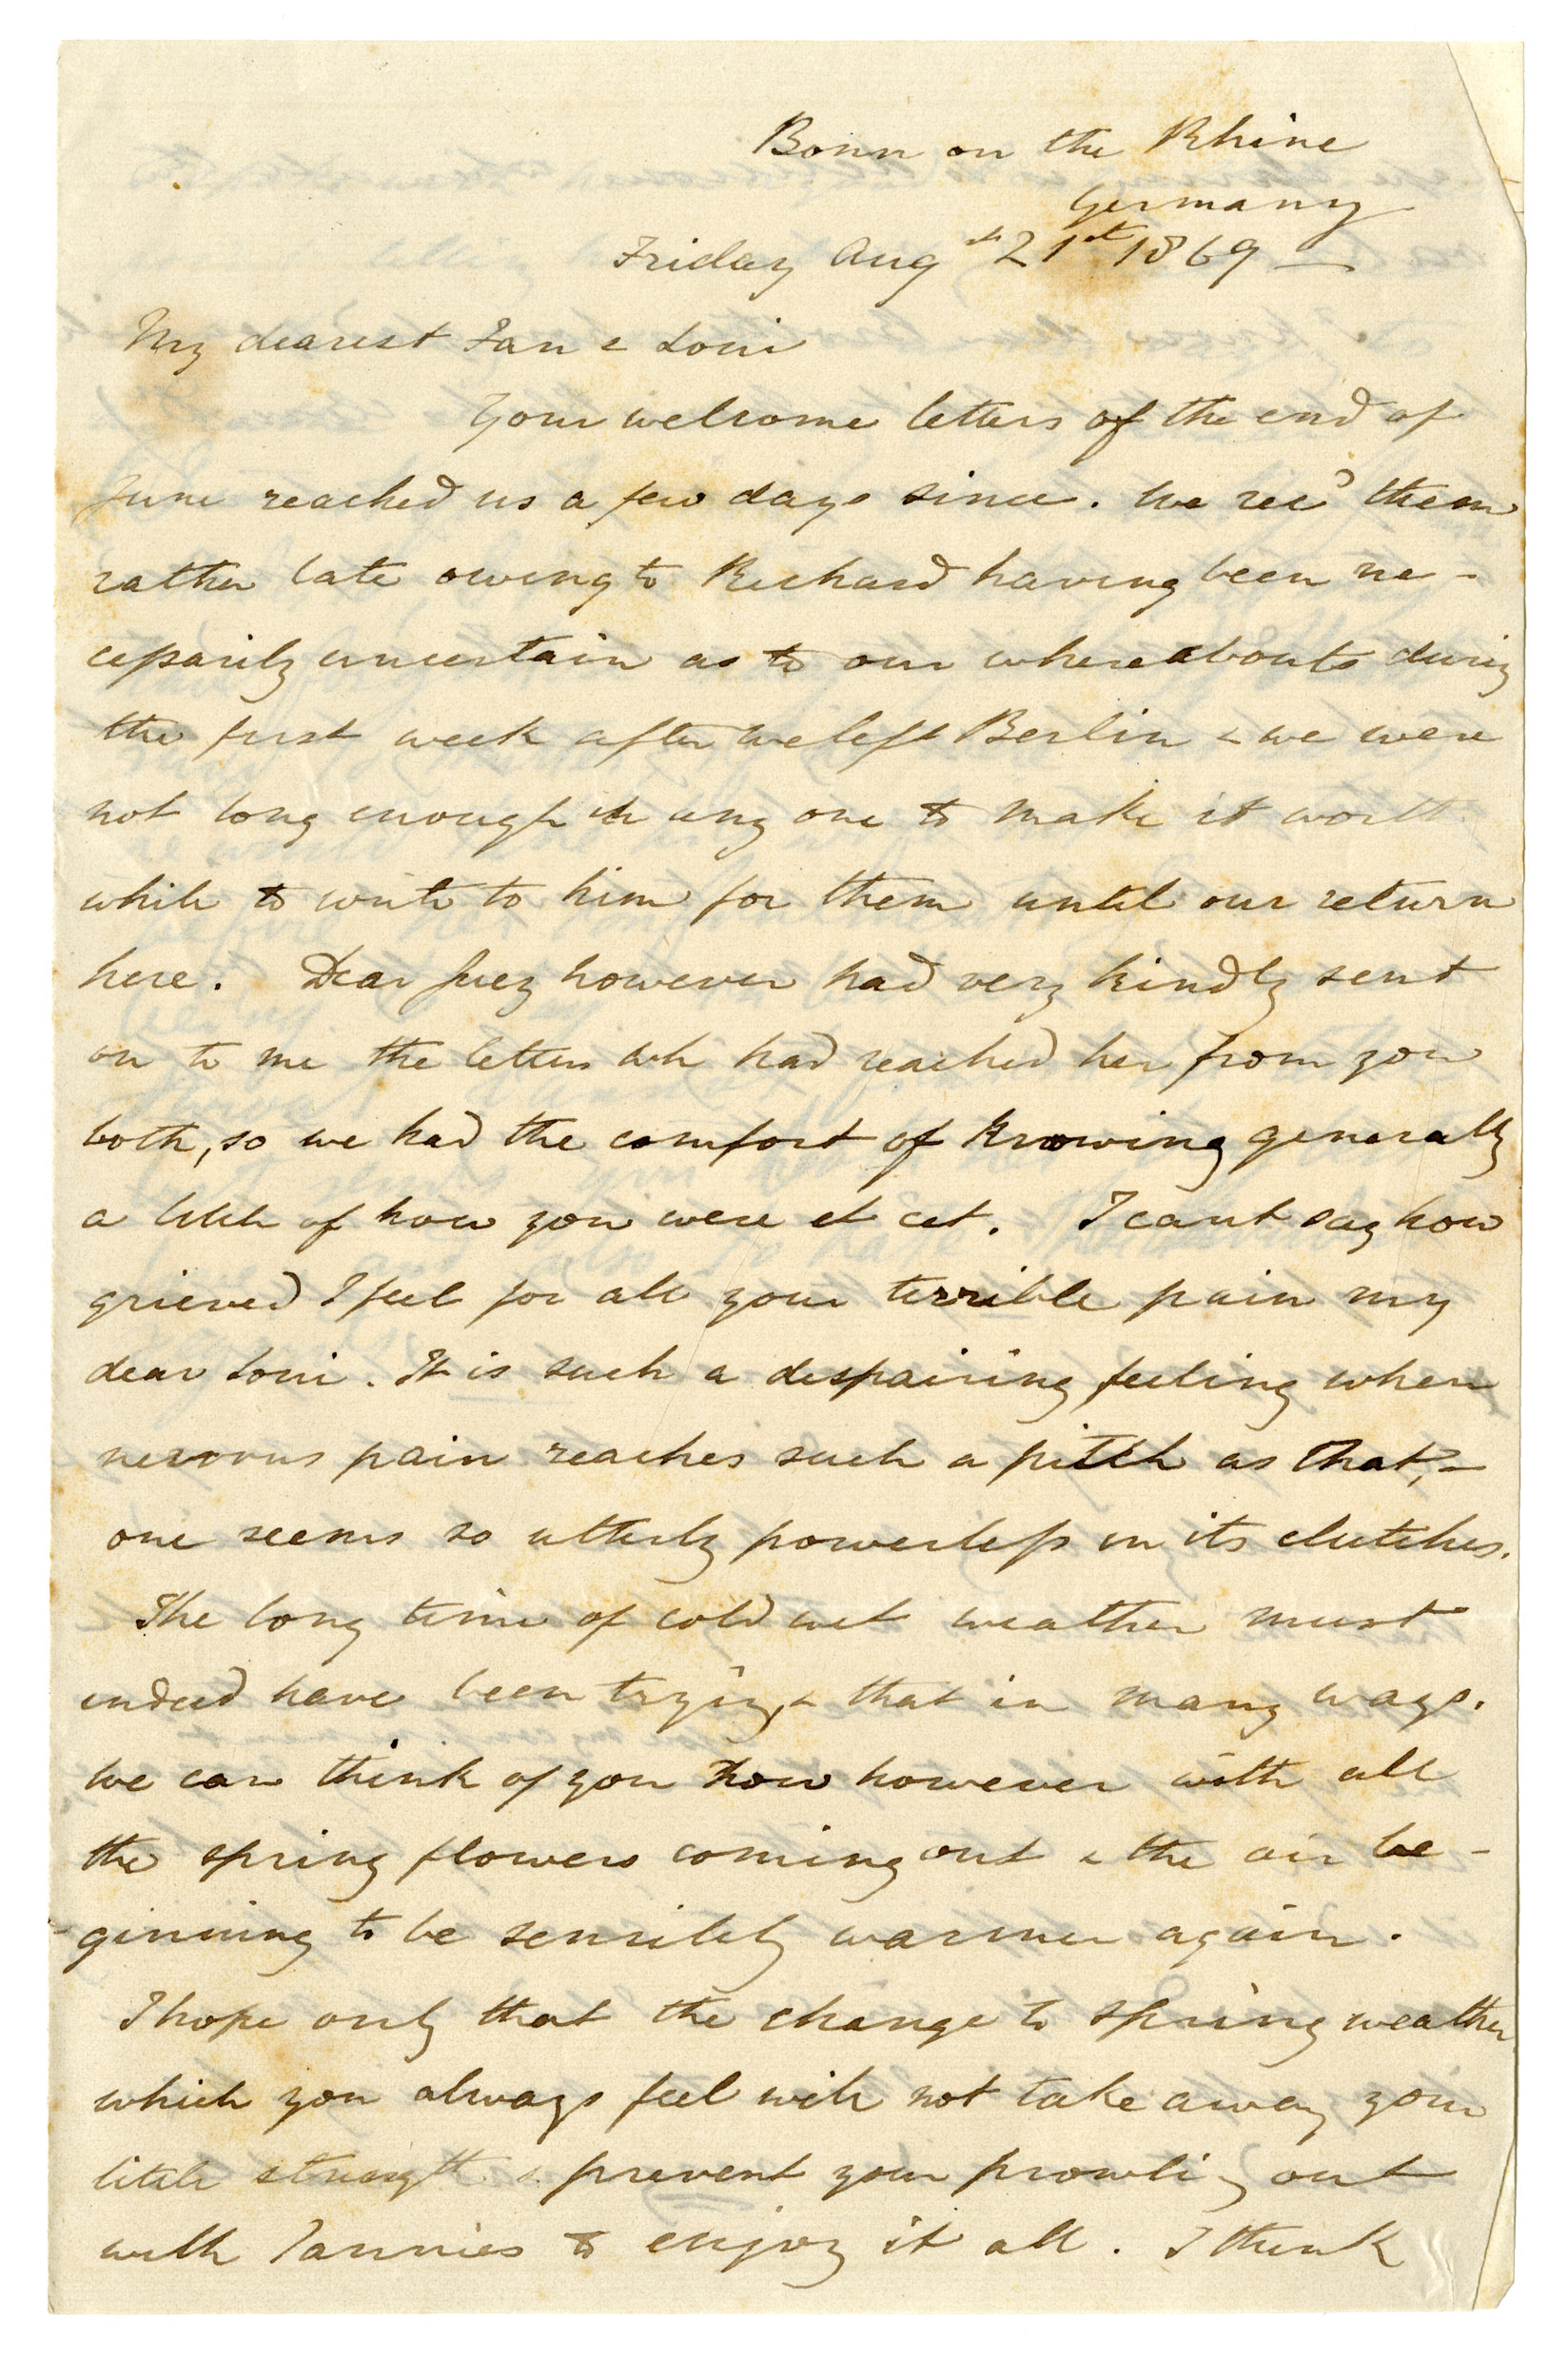 Bonn on the Rhine
Germany
Friday Aug st 21st 1869 —
My dearest Fan & Loui
Your welcome letters of the end of
June reached us a few days since. We recd them
rather late owing to Richard having been ne-
cessarily uncertain as to our whereabouts during
the first week after we left Berlin & we were
not long enough in any one to make it worth
while to write to him for them until our return
here. Dear however had very kindly sent
on to me the letters wh had reached her from you
both, so we had the comfort of knowing generally
a little of how you were et cet. I cant say how
grieved I feel for all your terrible pain my
dear Loui. It is such a despairing feeling when
nervous pain reaches such a pitch as that, —
one seems so utterly powerless in its clutches.
The long time of cold wet weather must
indeed have been trying, & that in many ways.
We can think of you now however with all
the spring flowers coming out & the air be-
ginning to be sensibly warmer again.
I hope only that the change to spring weather
which you always feel will not take away your
little strength & prevent your prowling out
with Fannies to enjoy it all. I think